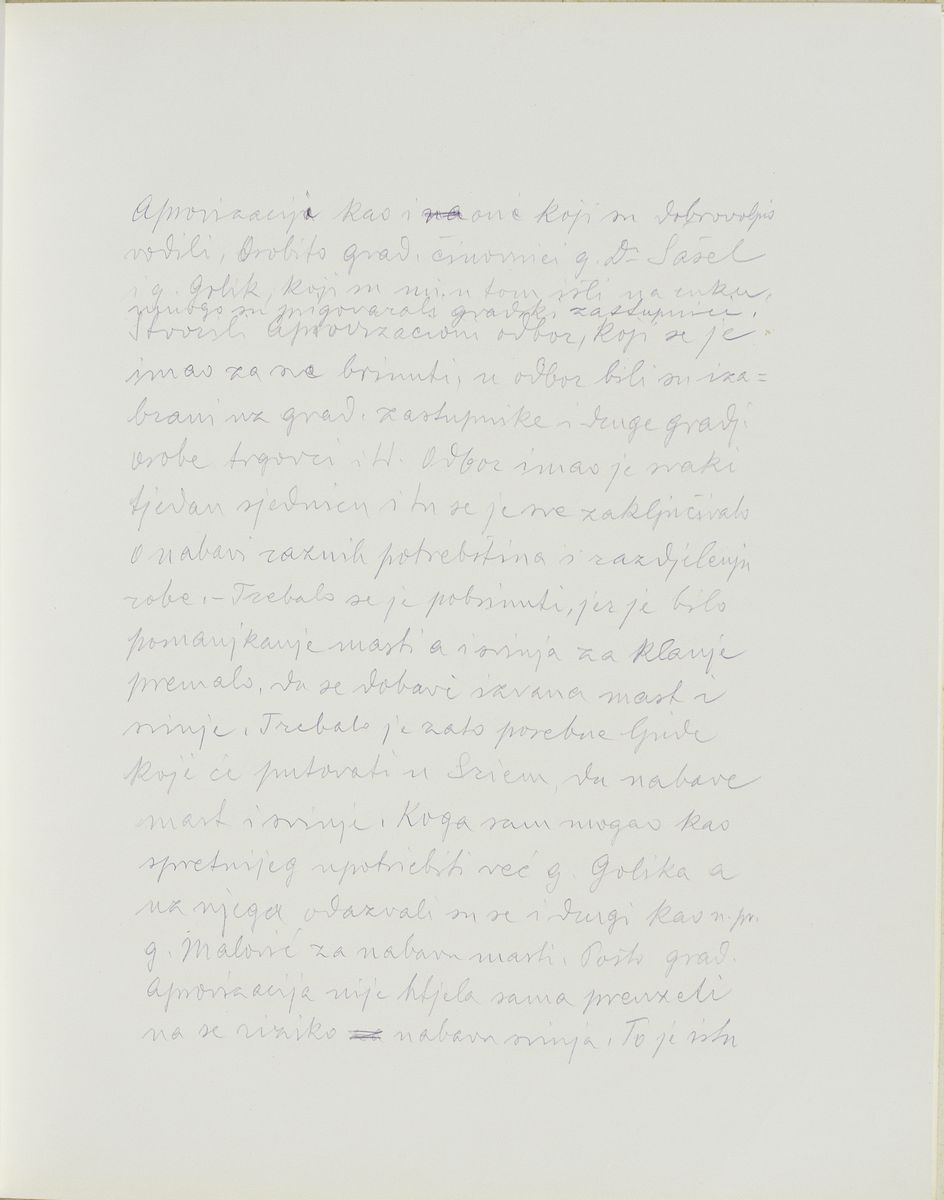 Aprovizacije kao i na one koji su dobrovoljno
vodili, osobito grad. činovnici g. Dr Šašel
i g. Golik, koji su mi u tom išli na ruku,
mnogo su prigovarali gradski zastupnici.
Stvorili Aprovizacioni odbor, koji se je
imao za sve brinuti, u odbor bili su iza=
brani uz grad. zastupnike i druge gradj.
osobe trgovci i td. Odbor imao je svaki
tjedan sjednicu i tu se je sve zaključivalo
o nabavi raznih potrebština i razdjelenju
robe. – Trebalo se je pobrinuti, jer je bilo
pomanjkanje masti a i svinja za klanje
premalo, da se dobavi izvana mast i
svinje. Trebalo je zato posebne ljude
koji će putovati u Sriem, da nabave
mast i svinje. Koga sam mogao kao
spretnijeg upotriebiti već g. Golika a
uz njega odazvali su se i drugi kao n.pr.
g. Malović za nabavu masti. Pošto grad.
Aprovizacija nije htjela sama preuzeti
na se riziko za nabavu svinja. To je istu